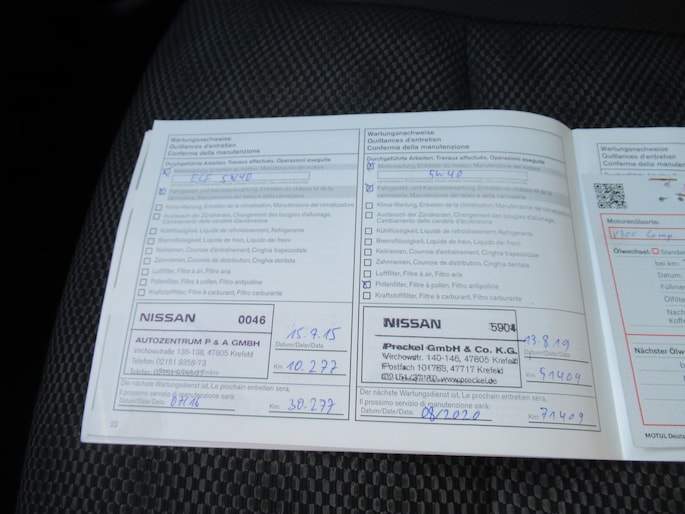 Wartungsnachweise
Quittances d'entretien
Conferma della manutenzione
Durchgeführte Arbeiten, Travaux effectués, Operazioni eseguite
ELF 5W40
Klima-Wartung, Entretien de la climatisation, Manutenzione del climatizzatore
Austausch der Zündkerzen, Changement des bougies d'allumage,
Cambiamento delle candele d'accensione
Kühlflüssigkeit, Liquide de refroidissement, Refrigerante
Bremsflüssigkeit, Liquide de frein, Liquido dei freni
Keilriemen, Courroie d'entraînement, Cinghia trapezoidale
Zahnriemen, Courroie de distribution, Cinghia dentata
Luftfilter, Filtre à air, Filtro aria
Pollenfilter, Filtre à pollen, Filtro antipolline
Kraftstofffilter, Filtre à carburant, Filtro carburante
NISSAN 0046
AUTOZENTRUM P & A GMBH
Virchowstraße 136-138, 47805 Krefeld
Telefon: 02151 9358-73
15.7.15
Datum/Date/Data
Km: 10.277
Der nächste Wartungsdienst ist, Le prochain entretien sera,
Il prossimo servizio di manutenzione sarà:
Datum/Date/Data: 07/16 Km: 30.277
22
Wartungsnachweise
Quittances d'entretien
Conferma della manutenzione
Durchgeführte Arbeiten, Travaux effectués, Operazioni eseguite
5W40
Klima-Wartung, Entretien de la climatisation, Manutenzione del climatizzatore
Austausch der Zündkerzen, Changement des bougies d'allumage,
Cambiamento delle candele d'accensione
Kühlflüssigkeit, Liquide de refroidissement, Refrigerante
Bremsflüssigkeit, Liquide de frein, Liquido dei freni
Keilriemen, Courroie d'entraînement, Cinghia trapezoidale
Zahnriemen, Courroie de distribution, Cinghia dentata
Luftfilter, Filtre à air, Filtro aria
Pollenfilter, Filtre à pollen, Filtro antipolline
Kraftstofffilter, Filtre à carburant, Filtro carburante
NISSAN 5904
Preckel GmbH & Co. K.G.
Virchowstr. 140-146, 47805 Krefeld
Postfach 101763, 47717 Krefeld
www.preckel.de
13.8.19
Datum/Date/Data
Km: 51409
Der nächste Wartungsdienst ist, Le prochain entretien sera,
Il prossimo servizio di manutenzione sarà:
Datum/Date/Data: 08/2020 Km: 71409
Wartungsnachweise
Quittances d'entretien
Conferma della manutenzione
Motorenölsorte:
Ölwechsel: Standard
bei km:
Datum
Füllmenge
Ölfilter
Nächster Ölwechsel
MOTUL Deuts